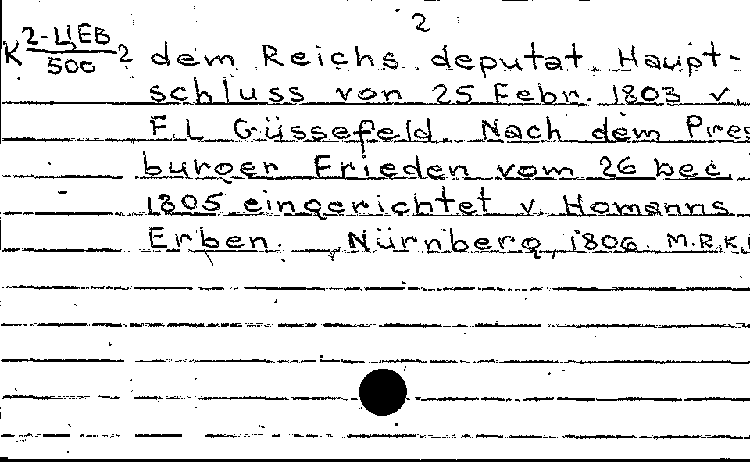 2
K 2-ЦЕВ/500 2 dem Reichs deputat. Haupt-
schluss von 25 Febr. 1803 v.
F.L Güssefeld. Nach dem Pres
burger Frieden vom 26 Dec.
1805 eingerichtet v. Homanns
Erben. Nürnberg, 1806. M.R.K.